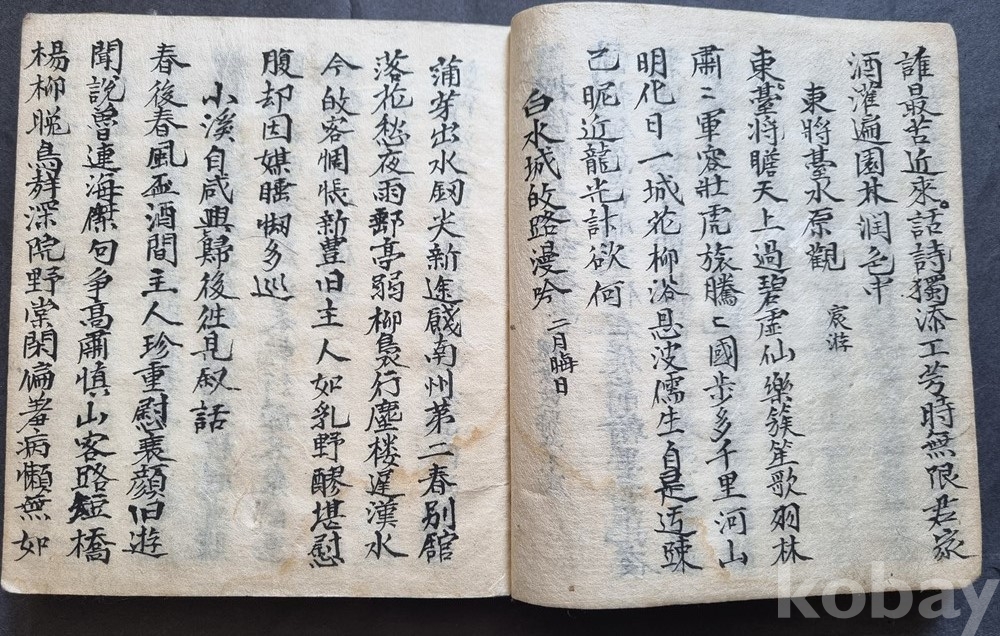 誰最苦近來話詩獨添工芳時無限君家
酒灌遍園林潤色中
東將臺水原觀
宸游
東臺將瞻天上過碧虛仙樂簇笙歌羽林
肅〻軍容壯虎旅騰〻國步多千里河山
明化日一城花柳浴恩波儒生自是迂疎
已昵近龍光計欲何
白水城故路漫吟 二月晦日
蒲芽出水劒尖新迻餞南州第二春別舘
落花愁夜雨郵亭弱柳裊行塵楼遲漢水
今故客惆悵新豊旧主人如乳野醪堪慰
腹却因媒睡惱多巡
小溪自咸興歸後徃見叙話
春後春風盃酒間主人珍重慰衰顔旧遊
聞說曾連海傑句争高肅愼山客路短橋
楊柳晩鳥群深院野棠閑偏著病懶無如
kobay